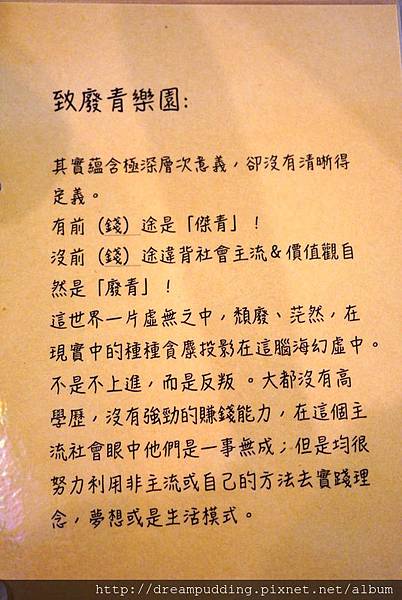 致廢青樂園:
其實蘊含極深層次意義，卻沒有清晰得
定義。
有前（錢）途是「傑青」！
沒前（錢）途違背社會主流＆價值觀自
然是「廢青」！
這世界一片虛無之中，頹廢、茫然，在
現實中的種種貪糜投影在這腦海幻虛中。
不是不上進，而是反叛。大都沒有高
學歷，沒有強勁的賺錢能力，在這個主
流社會眼中他們是一事無成；但是均很
努力利用非主流或自己的方法去實踐理
念，夢想或是生活模式。
http://dreampudding.pixnet.net/album